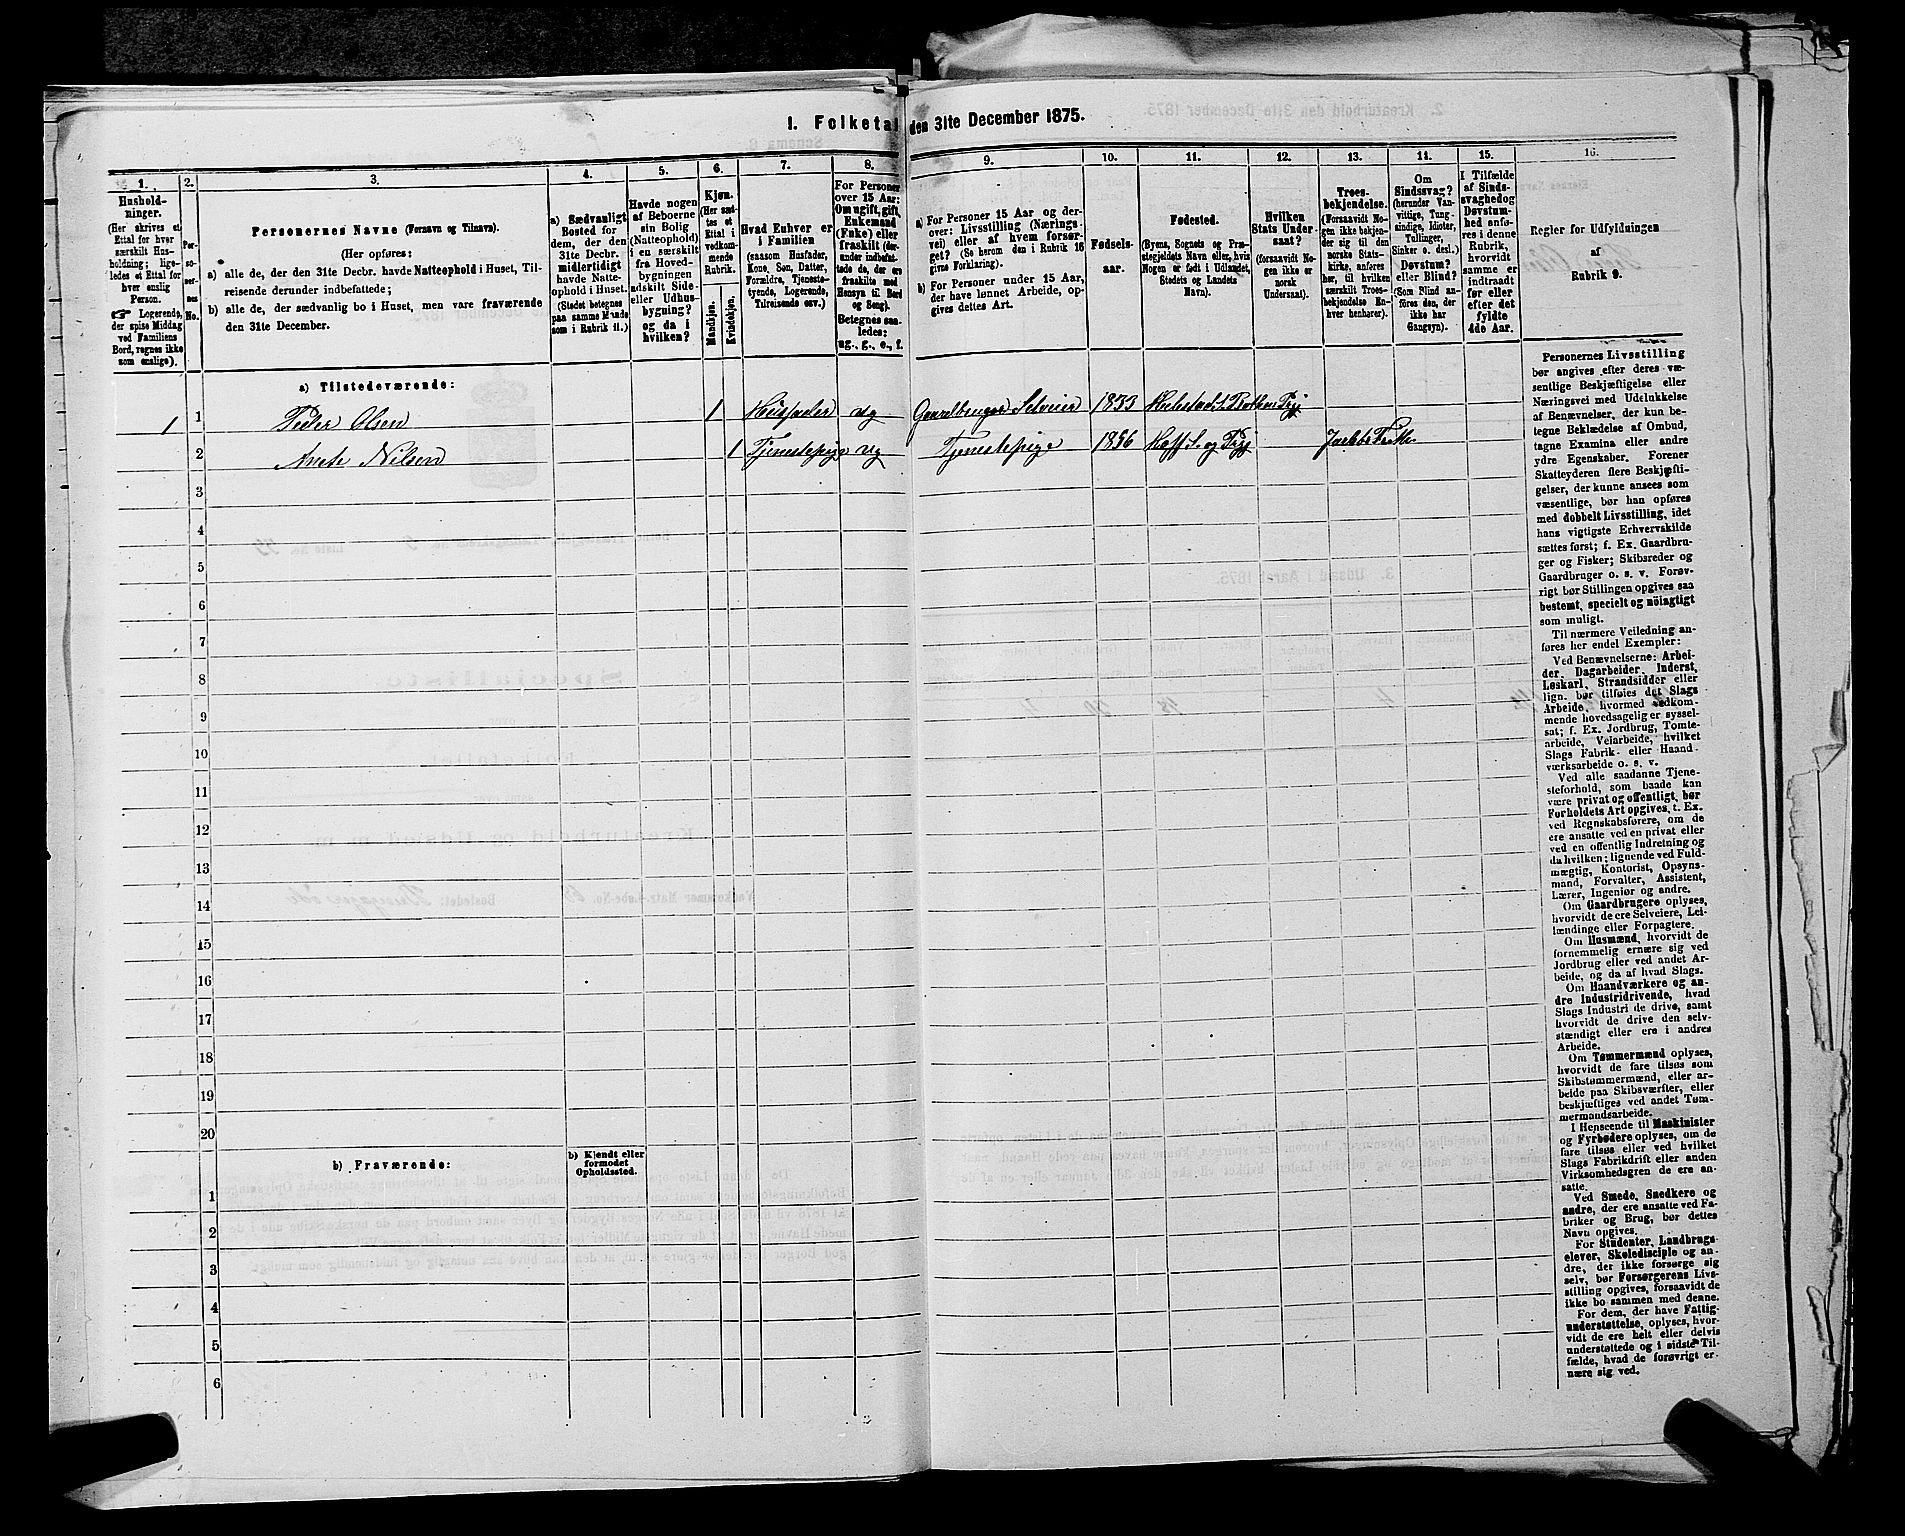 I. Folketal den 31te December 1875.
1. 2. 3. 4. 5. 6. 7. 8. 9. 10. 11. 12. 13. 14. 15. 16.
Hushold-
ninger.
(Her skrives et
Ettal for hver
særskilt Hus-
holdning; lige-
ledes et Ettal for
hver enslig
Person.
☞ Logerende,
der spise Middag
ved Familiens
Bord, regnes ikke
som enslige).
Per-
so-
ner-
nes
No.
Personernes Navne (Fornavn og Tilnavn).
(Her opføres:
a) alle de, der den 31te Decbr. havde Natteophold i Huset, Til-
reisende derunder indbefattede;
b) alle de, der sædvanlig bo i Huset, men vare fraværende
den 31te December.
a) Sædvanligt
Bosted for
dem, der den
31te Decbr.
midlertidigt
havde Natte-
ophold i Huset.
(Stedet betegnes
paa samme Maade
som i Rubrik 11.)
Havde nogen
af Beboerne
sin Bolig
(Natteophold)
i en særskilt
fra Hoved-
bygningen
adskilt Side-
eller Udhus-
bygning?
og da i
hvilken?
Kjøn.
(Her sæt-
tes et
Ettal i
vedkom-
mende
Rubrik.
Mandkjøn.
Kvindekjøn.
Hvad Enhver er
i Familien
(saasom Husfader,
Kone, Søn, Datter,
Forældre, Tjeneste-
tyende, Logerende,
Tilreisende osv.)
For Personer
over 15 Aar:
Om ugift, gift,
Enkemand
(Enke) eller
fraskilt (der-
under indbefat-
tede de, der ere
fraskilte med
Hensyn til Bord
og Seng).
Betegnes saa-
ledes:
ug., g., e., f.
a) For Personer 15 Aar og der-
over: Livsstilling (Nærings-
vei) eller af hvem forsør-
get? (Se herom den i Rubrik 16
givne Forklaring).
b) For Personer under 15 Aar,
der have lønnet Arbeide, op-
gives dettes Art.
Fødsels-
aar.
Fødested.
(Byens, Sognets og Præ-
stegjeldets Navn eller, hvis
Nogen er født i Udlandet,
Stedets og Landets
Navn).
Hvilken
Stats Under-
saat?
(forsaavidt No-
gen ikke er
norsk
Undersaat).
Troes-
bekjendelse.
(Forsaavidt No-
gen ikke bekjen-
der sig til den
norske Stats-
kirke, anføres
her, til hvilken
særskilt Troes-
bekjendelse En-
hver henhører).
Om
Sindssvag?
(herunder Van-
vittige, Tung-
sindige, Idioter,
Tullinger,
Sinker o. desl.)
Døvstum?
eller Blind?
(Som Blind an-
føres den, der
ikke har
Gangsyn).
I Tilfælde
af Sinds-
svaghed og
Døvstum-
hed anfø-
res i denne
Rubrik,
hvorvidt
samme er
indtraadt
før eller
efter det
fyldte
4de Aar.
Regler for Udfyldningen
af
Rubrik 9.
a) Tilstedeværende:
1 1 Peder Olsen 1 Husfader ug Gaardbruger Selveier 1833
2 Anete Nilsen 1 Tjenestepige ug Tjenestepige 1856
3
4
5
6
7
8
9
10
11
12
13
14
15
16
17
18
19
20
b) Fraværende:
b) Kjendt eller
formodet
Opholdssted.
1
2
3
4
5
6
Personernes Livsstilling
bør angives efter deres væ-
sentlige Beskjæftigelse eller
Næringsvei med Udelukkelse
af Benævnelser, der kun be-
tegne Beklædelse af Ombud,
tagne Examina eller andre
ydre Egenskaber. Forener
Skatteyderen flere Beskjæfti-
gelser, der kunne ansees som
væsentlige, bør han opføres
med dobbelt Livsstilling, idet
hans vigtigste Erhvervskilde
sættes først; f. Ex. Gaardbru-
ger og Fisker; Skibsreder og
Gaardbruger o. s. v. Forøv-
rigt bør Stillingen opgives saa
bestemt, specielt og nöiagtigt
som muligt.
Til nærmere Veiledning an-
føres her endel Exempler:
Ved Benævnelserne: Arbei-
der, Dagarbeider, Inderst,
Løskarl, Strandsidder eller
lign. bør tilføies det Slags
Arbeide, hvormed vedkom-
mende hovedsagelig er syssel-
sat; f. Ex. Jordbrug, Tomte-
arbeide, Veiarbeide, hvilket
Slags Fabrik- eller Haand-
værksarbeide o. s. v.
Ved alle saadanne Tjene-
steforhold, som baade kan
være privat og offentligt, bør
Forholdets Art opgives, t. Ex.
ved Regnskabsførere, om de
ere ansatte ved en privat eller
ved en offentlig Indretning og
da hvilken; lignende ved Fuld-
mægtig, Kontorist, Opsyns-
mand, Forvalter, Assistent,
Lærer, Ingeniør og andre.
Om Gaardbrugere oplyses,
hvorvidt de ere Selveiere, Lei-
lændinge eller Forpagtere.
Om Husmænd, hvorvidt de
fornemmelig ernære sig ved
Jordbrug eller ved andet Ar-
beide, og da af hvad Slags.
Om Haandværkere og an-
dre Industridrivende, hvad
Slags Industri de drive, samt
hvorvidt de drive den selv-
stændigt eller ere i andres
Arbeide.
Om Tømmermænd oplyses,
hvorvidt de fare tilsøs som
Skibstømmermænd, eller ar-
beide paa Skibsværfter, eller
beskjæftiges ved andet Tøm-
mermandsarbeide.
I Henseende til Maskinister
og Fyrbødere oplyses, om de
fare tilsøs eller ved hvilket
Slags Fabrikdrift eller anden
Virksomhedsgren de ere an-
satte.
Ved Smede, Snedkere og
andre, der ere ansatte ved Fa-
briker og Brug, bør dettes
Navn opgives.
For Studenter, Landbrugs-
elever, Skoledisciple og an-
dre, der ikke forsørge sig
selv, bør Forsørgerens Livs-
stilling opgives, forsaavidt de
ikke bo sammen med denne.
For dem, der have Fattig-
understøttelse, oplyses, hvor-
vidt de ere helt eller delvis
understøttede og i sidste Til-
fælde, hvad de forøvrigt er-
nære sig ved.